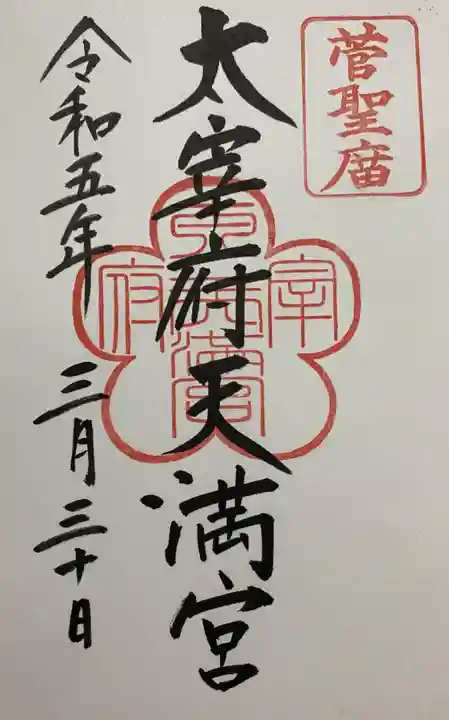 菅聖廟
太宰府天満宮
令和五年 三月三十日